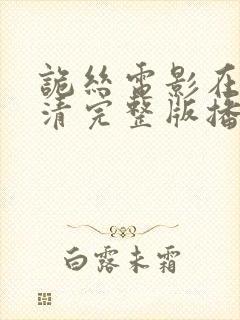 詭絲電影在
清完整版播
白露未霜